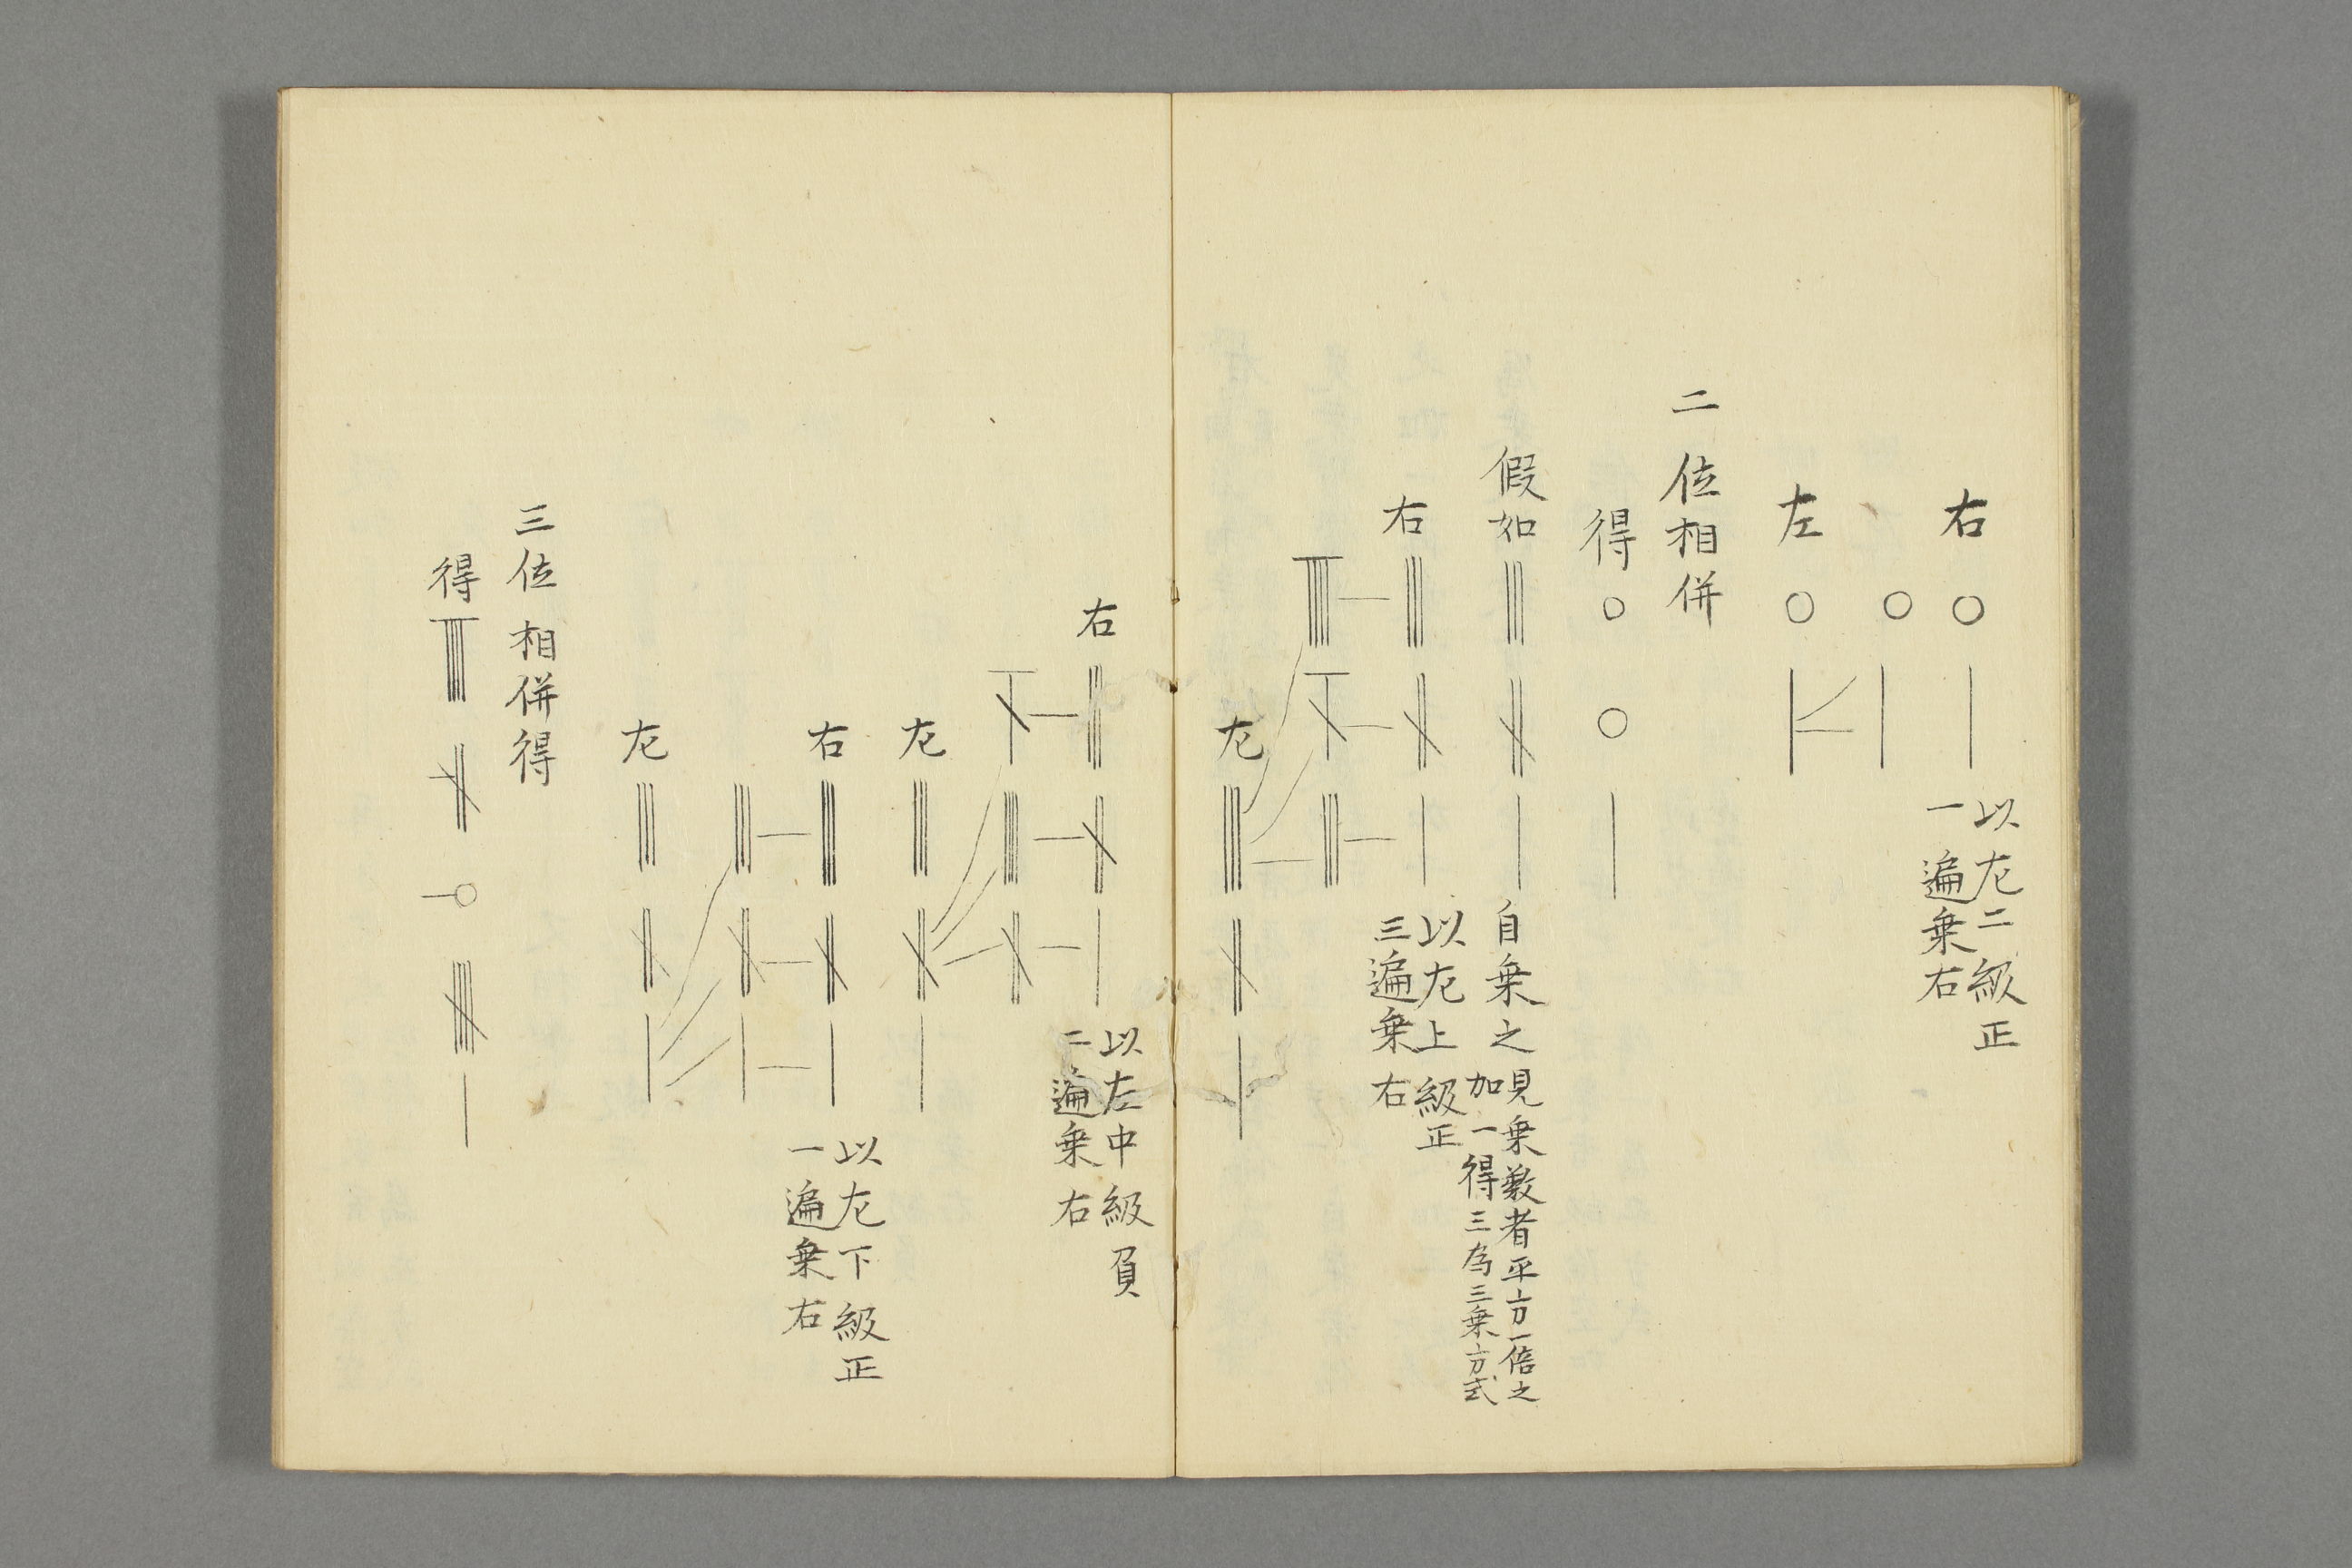 右 〇 | 以左二級正
一遍乗右
〇 |
左 〇 |
二位相併
得 〇 〇 |
假如 ||| || | 自乗之 見乗數者平方一倍之
加一得三為三乗方式
右 ||| || | 以左上級正
三遍乗右
左 ||| || |
右 ||| || | 以左中級負
二遍乗右
左 ||| || |
右 ||| || | 以左下級正
一遍乗右
左 ||| || |
三位相併得
得